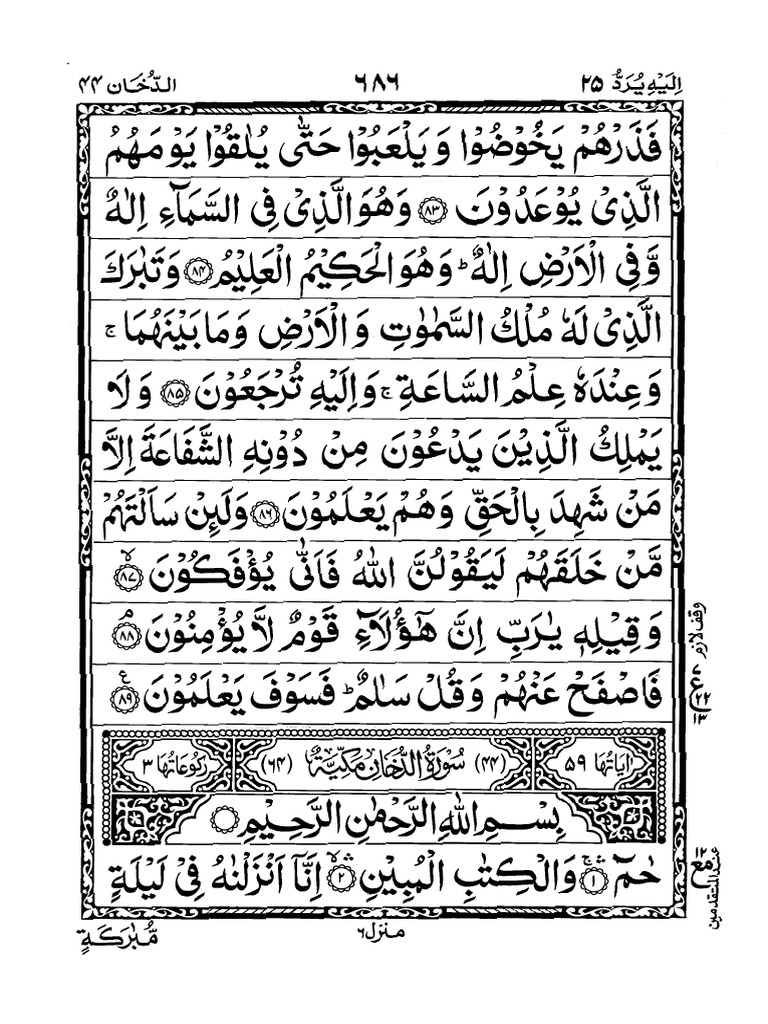 اِلَيْهِ يُرَدُّ ٢٥ ٦٨٦ الدُّخَان ٤٤
فَذَرْهُمْ يَخُوْضُوْا وَ يَلْعَبُوْا حَتّٰى يُلٰقُوْا يَوْمَهُمُ
الَّذِىْ يُوْعَدُوْنَ ۝٨٣ وَهُوَ الَّذِىْ فِى السَّمَآءِ اِلٰهٌ
وَّفِى الْاَرْضِ اِلٰهٌ ؕ وَهُوَ الْحَكِيْمُ الْعَلِيْمُ ۝٨٤ وَتَبٰرَكَ
الَّذِىْ لَهٗ مُلْكُ السَّمٰوٰتِ وَ الْاَرْضِ وَمَا بَيْنَهُمَا ۚ
وَعِنْدَهٗ عِلْمُ السَّاعَةِ ۚ وَاِلَيْهِ تُرْجَعُوْنَ ۝٨٥ وَلَا
يَمْلِكُ الَّذِيْنَ يَدْعُوْنَ مِنْ دُوْنِهِ الشَّفَاعَةَ اِلَّا
مَنْ شَهِدَ بِالْحَقِّ وَهُمْ يَعْلَمُوْنَ ۝٨٦ وَلَئِنْ سَاَلْتَهُمْ
مَّنْ خَلَقَهُمْ لَيَقُوْلُنَّ اللّٰهُ فَاَنّٰى يُؤْفَكُوْنَ ۝٨٧ ۙ
وَقِيْلِهٖ يٰرَبِّ اِنَّ هٰٓؤُلَآءِ قَوْمٌ لَّا يُؤْمِنُوْنَ ۝٨٨ ۘ
وقف لازم
فَاصْفَحْ عَنْهُمْ وَقُلْ سَلٰمٌ ؕ فَسَوْفَ يَعْلَمُوْنَ ۝٨٩ ع
ع ٢٢ ١٣
اٰيَاتُهَا ٥٩ (٤٤) سُوْرَةُ الدُّخَانِ مَكِّيَّةٌ (٦٤) رُكُوْعَاتُهَا ٣
بِسْمِ اللّٰهِ الرَّحْمٰنِ الرَّحِيْمِ ۝
حٰمٓ ۝١ ۚۛ وَالْكِتٰبِ الْمُبِيْنِ ۝٢ ۙۛ اِنَّاۤ اَنْزَلْنٰهُ فِىْ لَيْلَةٍ
مع ١٢ عند المتقدمين
منزل ٦
مُّبٰرَكَةٍ